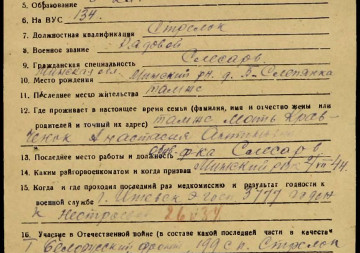 5. Образование
6. На ВУС 134.
7. Должностная квалификация Стрелок
8. Военное звание Рядовой
9. Гражданская специальность Слесарь
10. Место рождения Минская обл. Минский рн. д. Слепянка
11. Последнее место жительства тамже
12. Где проживает в настоящее время семья (фамилия, имя и отчество жены или
родителей и точный их адрес) тамже Мать Крав-
ченок Анастасия
13. Последнее место работы и должность ф-ка Слесарь
14. Каким райгорвоенкоматом и когда призван Минский рвк 44.
15. Когда и где проходил последний раз медкомиссию и результат годности к
военной службе г. Ижевск 3777 годен
к Нестроевой 26434
16. Участие в Отечественной войне (в составе какой последней части в качестве
I Белорусский фронт 199 с.п. Стрелок